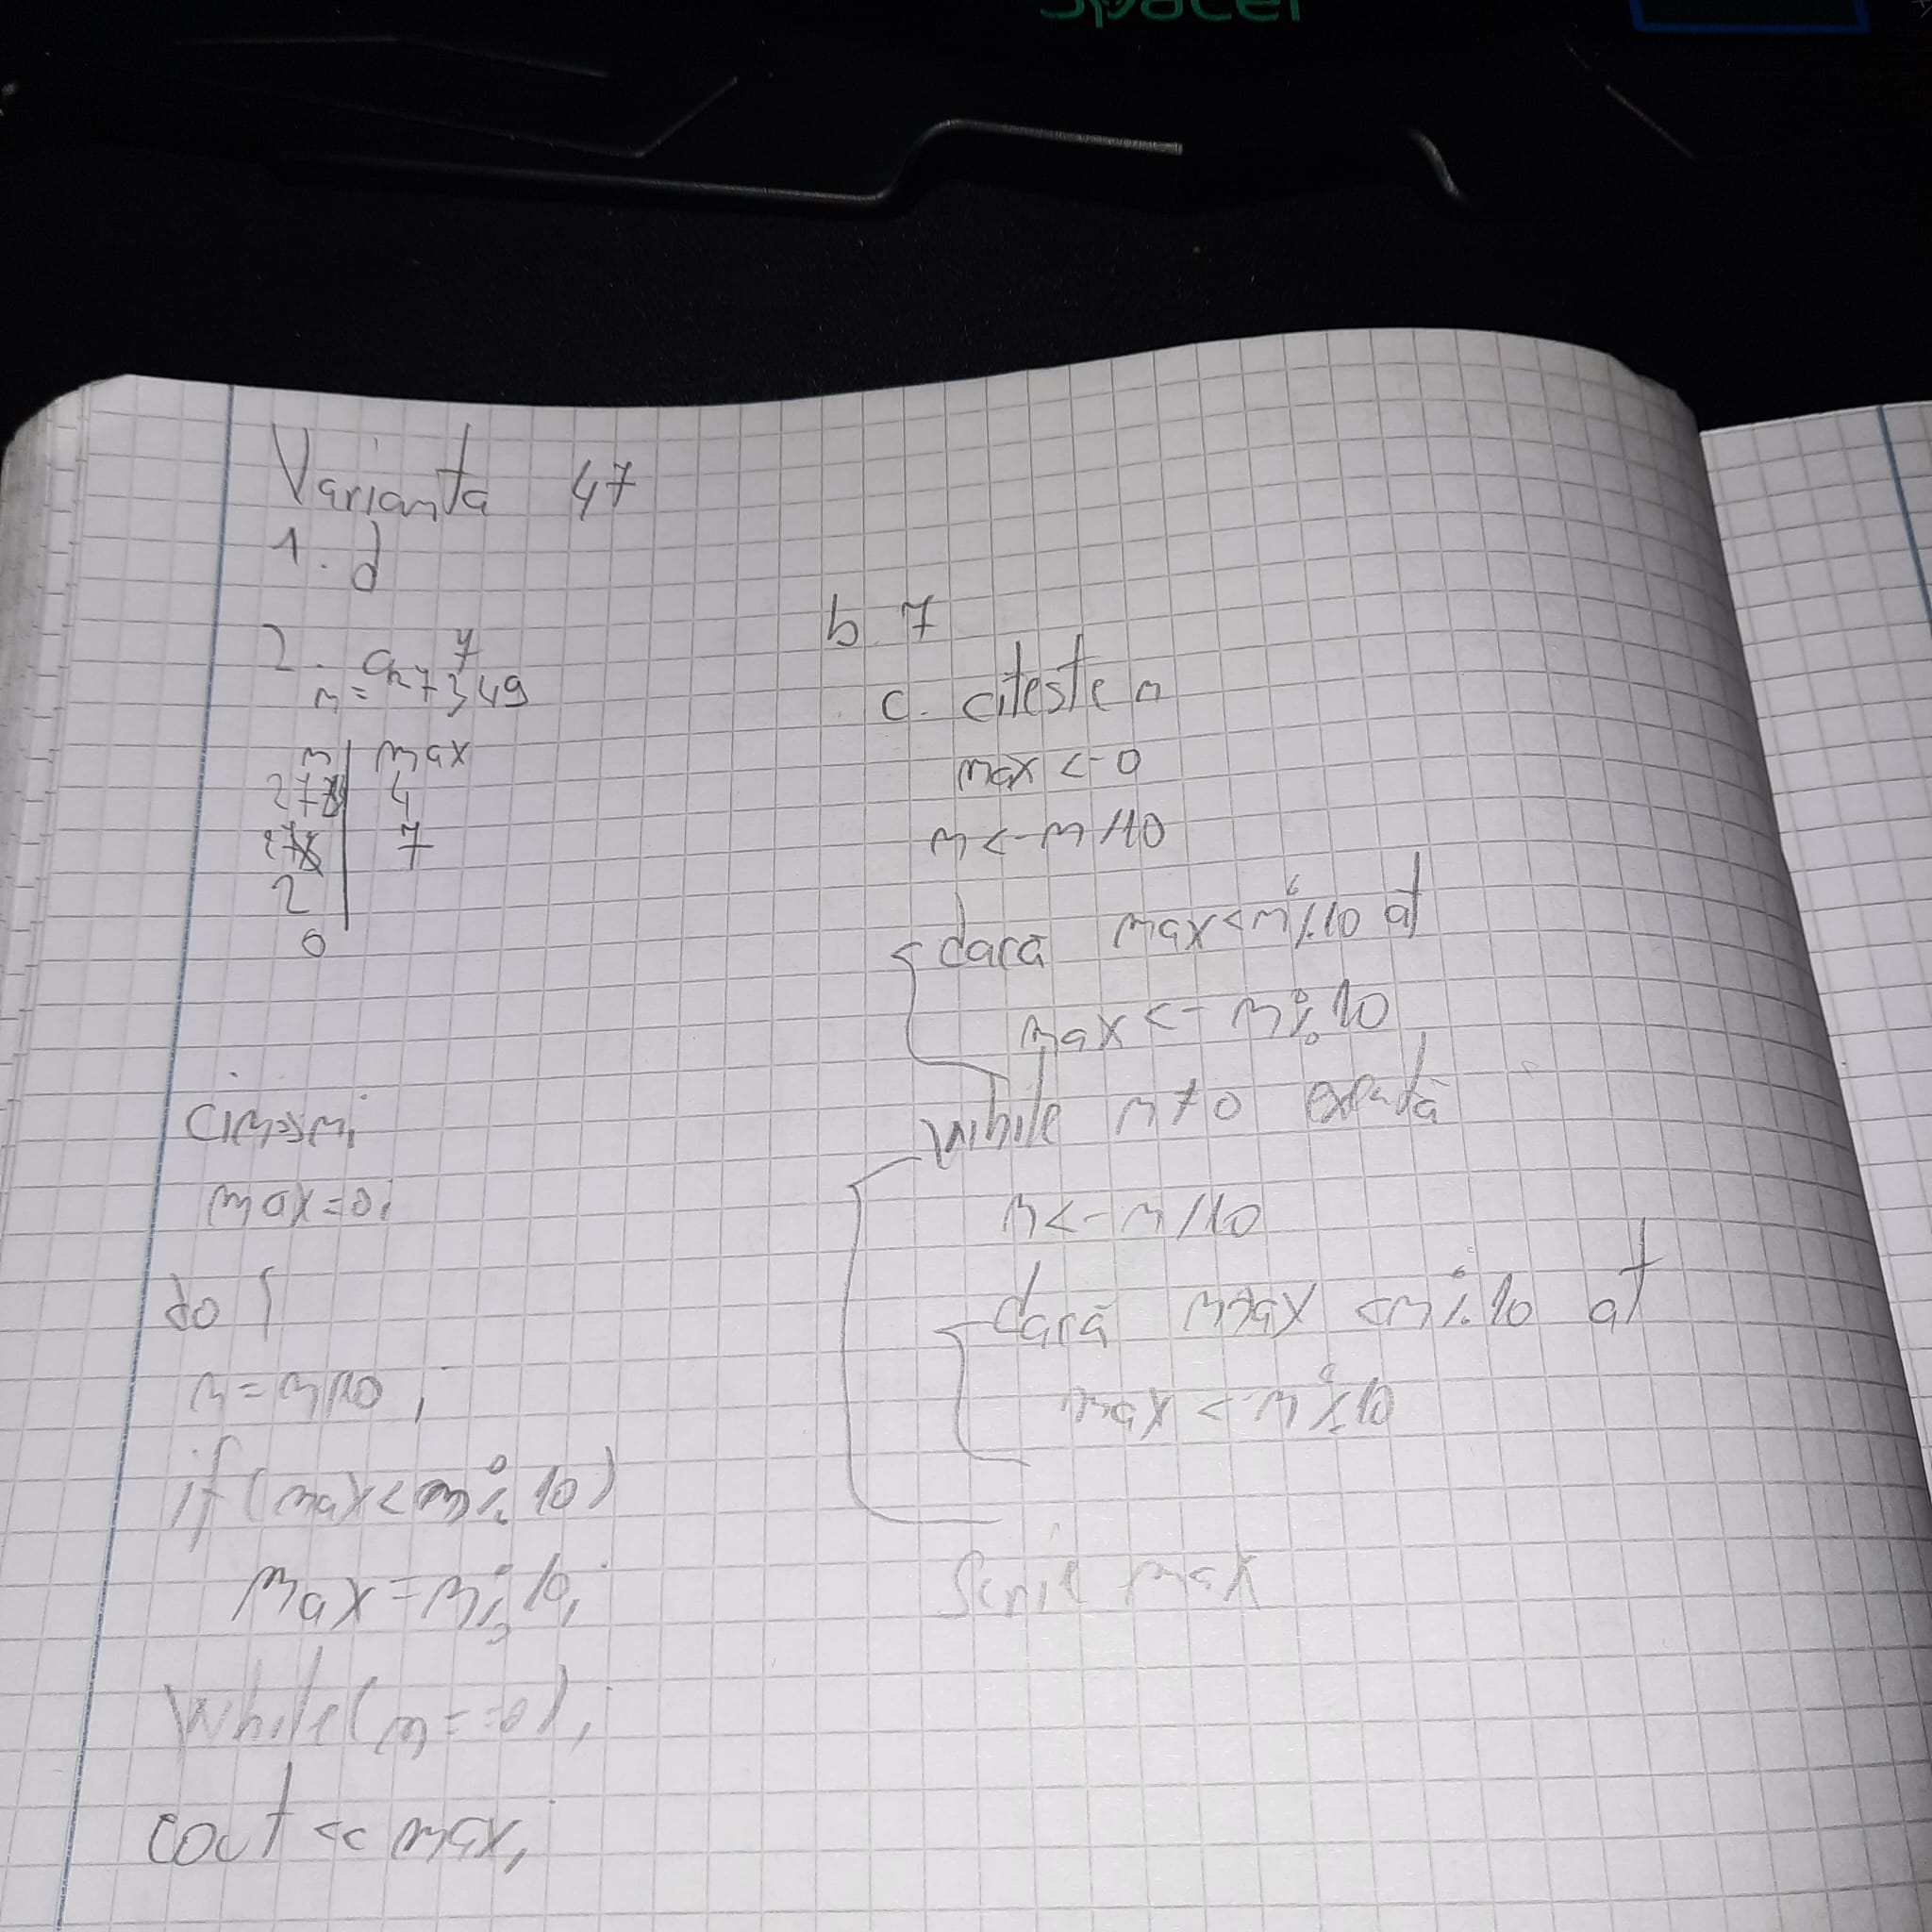 Spacer
Varianta 47
1. d
2. a. 7
n = 27349
n | max
4
7
2
0
cin>>n;
max=0;
do {
n = n/10;
if (max < n%10)
max = n%10;
while (n==0);
cout << max;
b. 7
c. citeste n
max <- 0
n <- n/10
dacă max < n%10 at
max <- n%10
while n≠0 exectă
n <- n/10
dacă max < n%10 at
max <- n%10
Scrie max